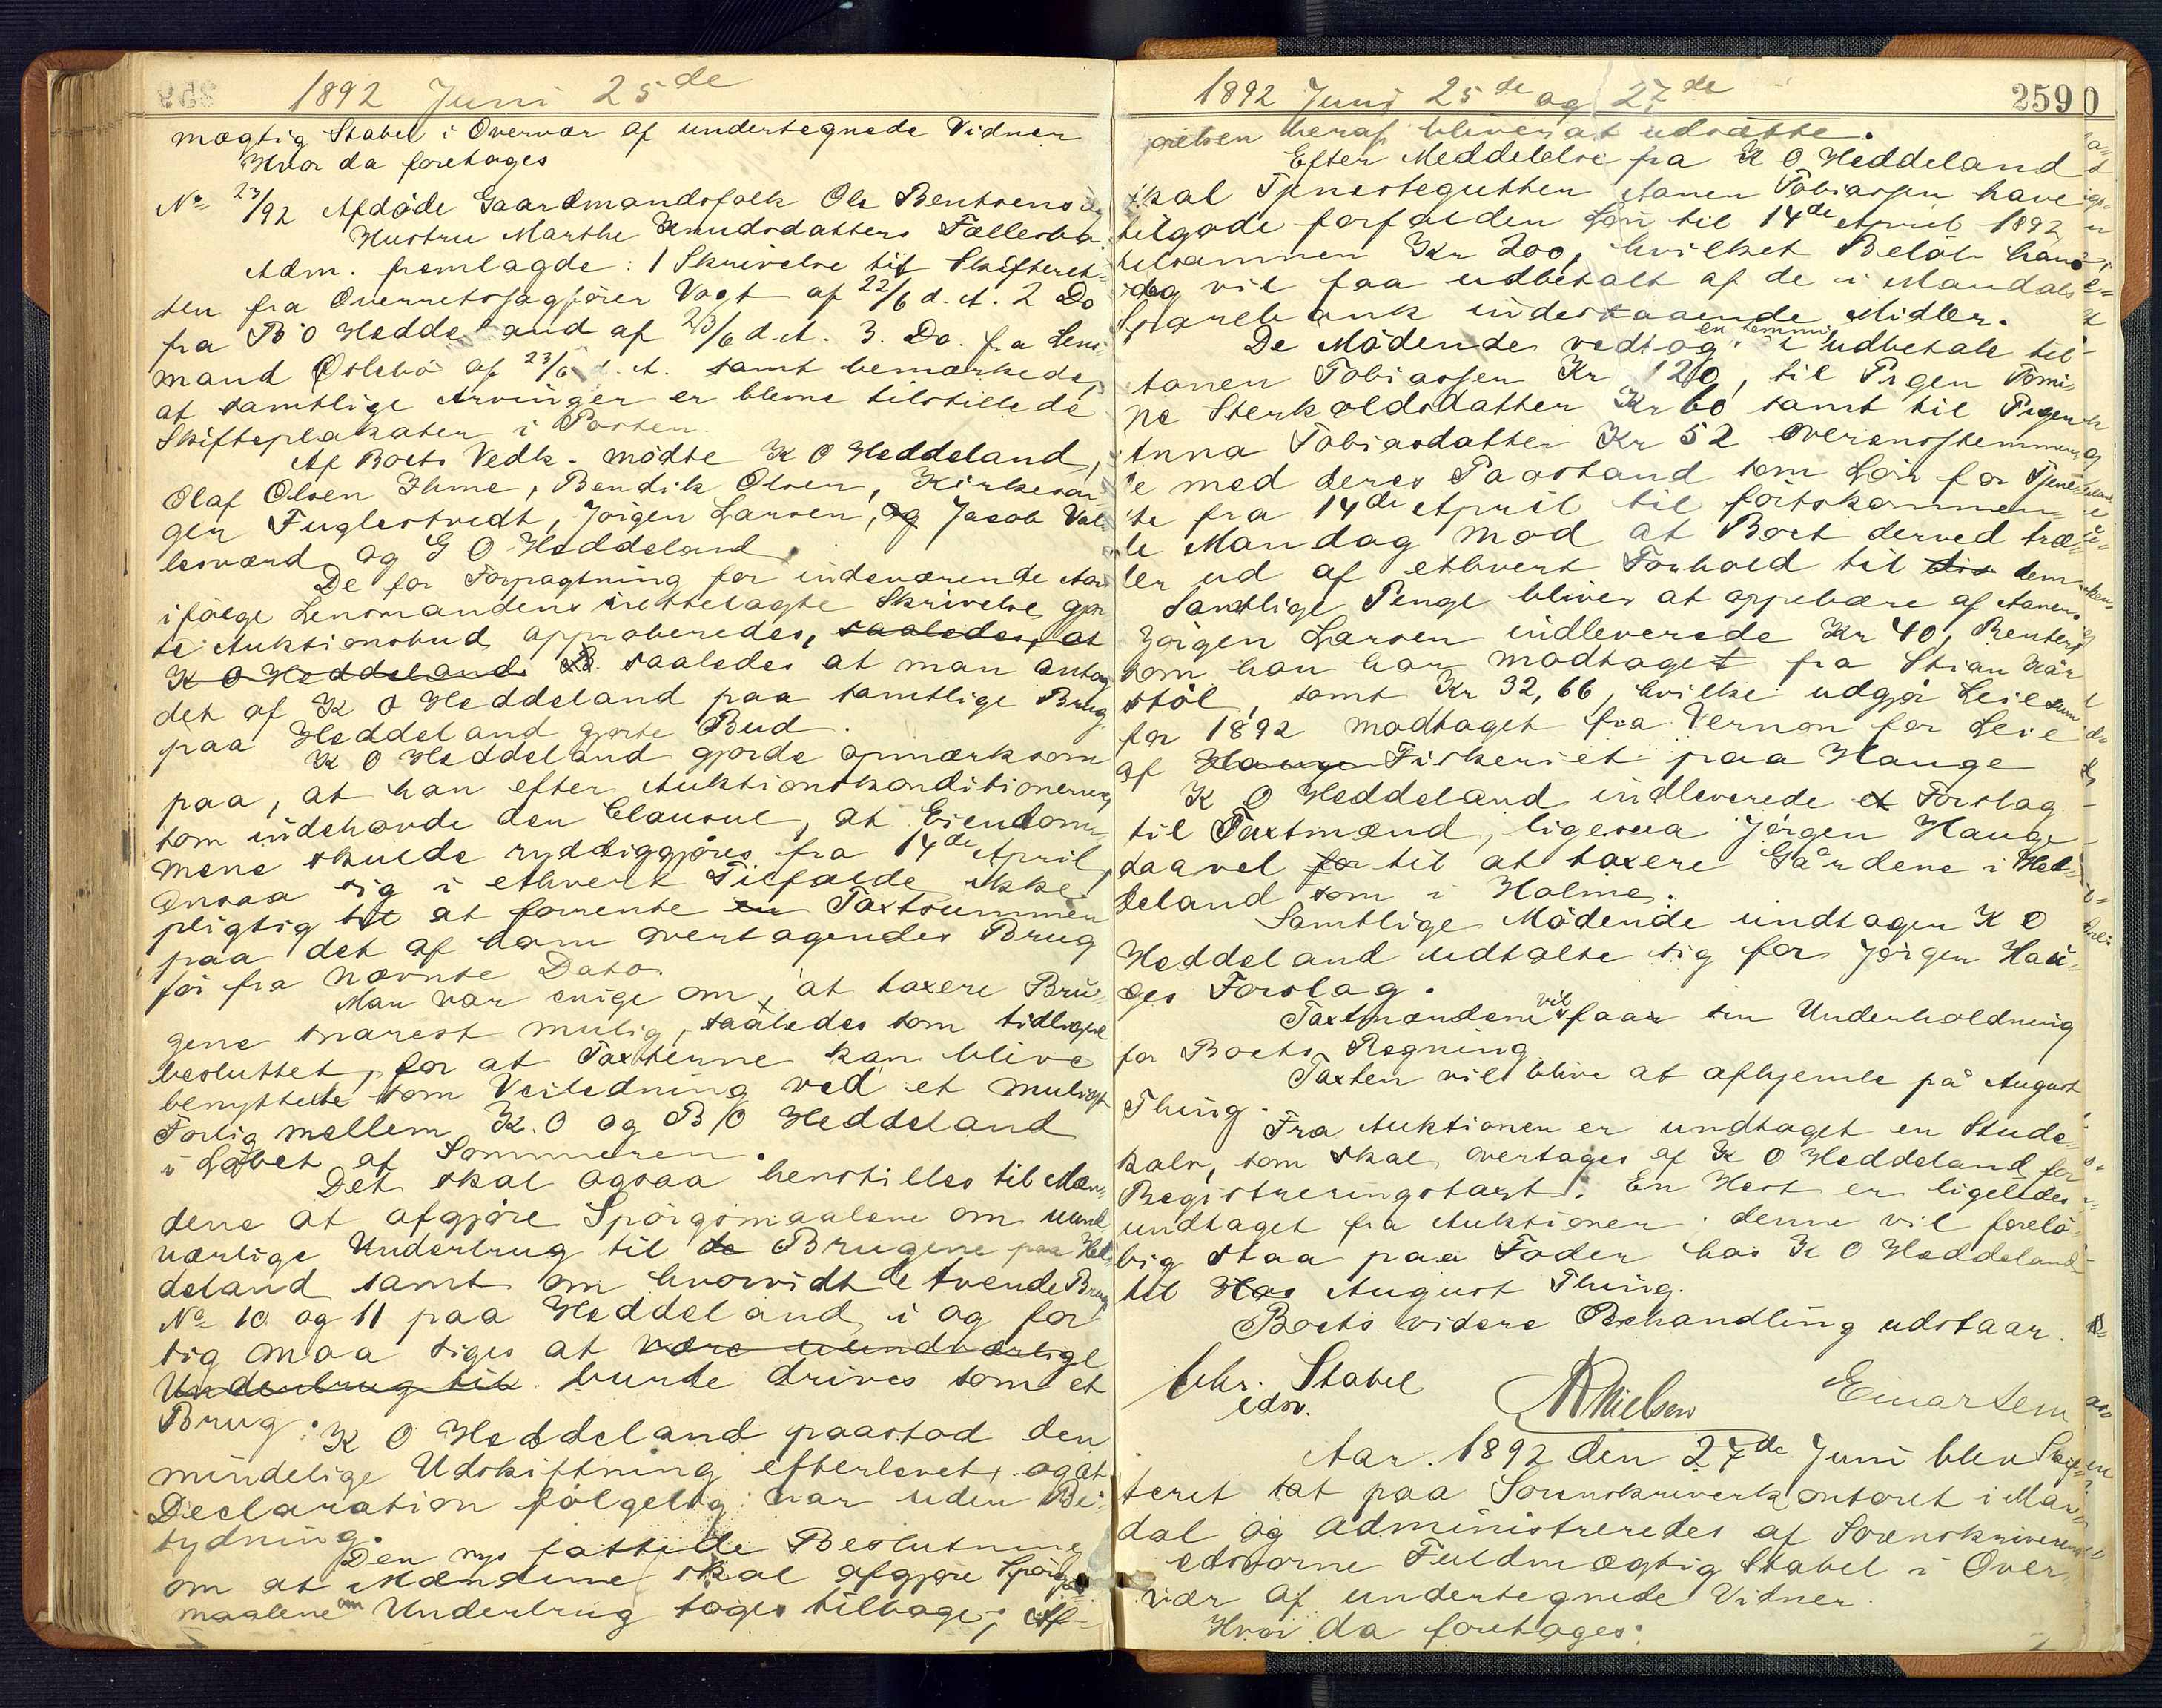 1892 Juni 25de
mægtig Stabel i Overvær af undertegnede Vidner
Hvor da foretages
No 23/92 Afdöde Gaardmandsfolk Ole Bentsens og
Hustru Marthe Knudsdatters Fællesbo.
Adm. fremlagde: 1 Skrivelse til Skifteret-
ten fra Overretssagförer Vogt af 22/6 d. A. 2 Do
fra B O Heddeland af 23/6 d. A. 3. Do. fra Lens-
mand Öslebö af 23/6 d. A. samt bemærkede,
at samtlige Arvinger er blevne tilstillede
Skifteplakaten i Posten.
Af Boets Vedk. mödte K O Heddeland,
Olaf Olsen Ihme, Bendik Olsen, Kirkesan-
ger Fuglestvedt, Jörgen Larsen, og Jacob Val-
lesværd og G O Heddeland.
De for Forpagtning for indeværende Aar
ifölge Lensmandens irettelagte Skrivelse gjor-
te Auktionsbud approberedes, saaledes, at
K O Heddeland saaledes at man antog
det af K O Heddeland paa samtlige Brug
paa Heddeland gjorte Bud.
K O Heddeland gjorde opmærksom
paa, at han efter Auktionskonditionerne
som indehavde den Clausul, at Eiendom-
mene skulde ryddiggjöres fra 14de April,
ansaa sig i ethvert Tilfælde ikke
pligtig til at forrente en Taxtsummen
paa det af ham overtagendes Brug
för fra nævnte Dato.
Man var enige om, at taxere Bru-
gene snarest mulig, saaledes som tidligere
besluttet, for at Taxterne kan blive
benyttede som Veiledning ved et muligt
Forlig mellem K. O og B O Heddeland
i Löbet af Sommeren.
Det skal ogsaa henstilles til Mæn-
dene at afgjöre Spörgsmaalene om uund-
værlige Underbrug til de Brugene paa Hed-
deland samt om hvorvidt de tvende Brug
No 10 og 11 paa Heddeland i og for
sig maa siges at være uundværlige
Underbrug til burde drives som et
Brug.
K O Heddeland paastod den
mindelige Udskiftning efterlevet, og at
Declaration fölgelig var uden Be-
tydning.
Den nys fattede Beslutning
om at Mændene skal afgjöre Spörgs-
maalene om Underbrug toges tilbage; Af-
1892 Juni 25de og 27de
259
görelsen heraf bliver at udsætte.
Efter Meddelelse fra K O Heddeland
skal Tjenestegutten Aanen Tobiassen have
tilgode forfalden Lön til 14de April 1892
tilsammen Kr 200, hvilket Belöb han
idag vil faa udbetalt af de i Mandals
Sparebank indestaaende Midler.
De Mödende vedtog at udbetale til
Aanen Tobiassen Kr 120, til Pigen Tomi-
ne Sterkoldsdatter Kr 60 samt til Pigen
Anna Tobiasdatter Kr 52 overensstemmen-
de med deres Paastand som Lön for Tjene-
ste fra 14de April til förstkommen-
de Mandag mod at Boet derved træ-
der ud af ethvert Forhold til dis dem
Samtlige Penge bliver at oppebære af Aanen.
Jörgen Larsen indleverede Kr 40, Renter
som han har modtaget fra Stian Kår
stöl, samt Kr 32,66, hvilke udgjör Leiesum
for 1892 modtaget fra Vernon for Leie
af Hauge Fiskeriet paa Hauge
K O Heddeland indleverede et Forslag
til Taxtmænd, ligesaa Jörgen Hauge
saavel for til at taxere Gårdene i Hed-
deland som i Holme.
Samtlige Mödende undtagen K O
Heddeland udtalte sig for Jörgen Hau-
ges Forslag.
Taxtmændene vil faar sin Underholdning
for Boets Regning.
Taxten vil blive at afhjemle på August
Thing.
Fra Auktionen er undtaget en Stude-
kalv, som skal overtages af K O Heddeland for
Registreringstaxt. En Hest er ligeledes
undtaget fra Auktionen: denne vil forelö-
big staa paa Foder hos K O Heddeland
til Hos August Thing.
Boets videre Behandling udstaar.
Chr. Stabel
edsv.
A Nielsen
Einar Lem
Aar 1892 den 27de Juni blev Skif-
teret sat paa Sorenskriverkontoret i Man-
dal og administreredes af Sorenskriverens
edsvorne Fuldmægtig Stabel i Over-
vær af undertegnede Vidner.
Hvor da foretages: